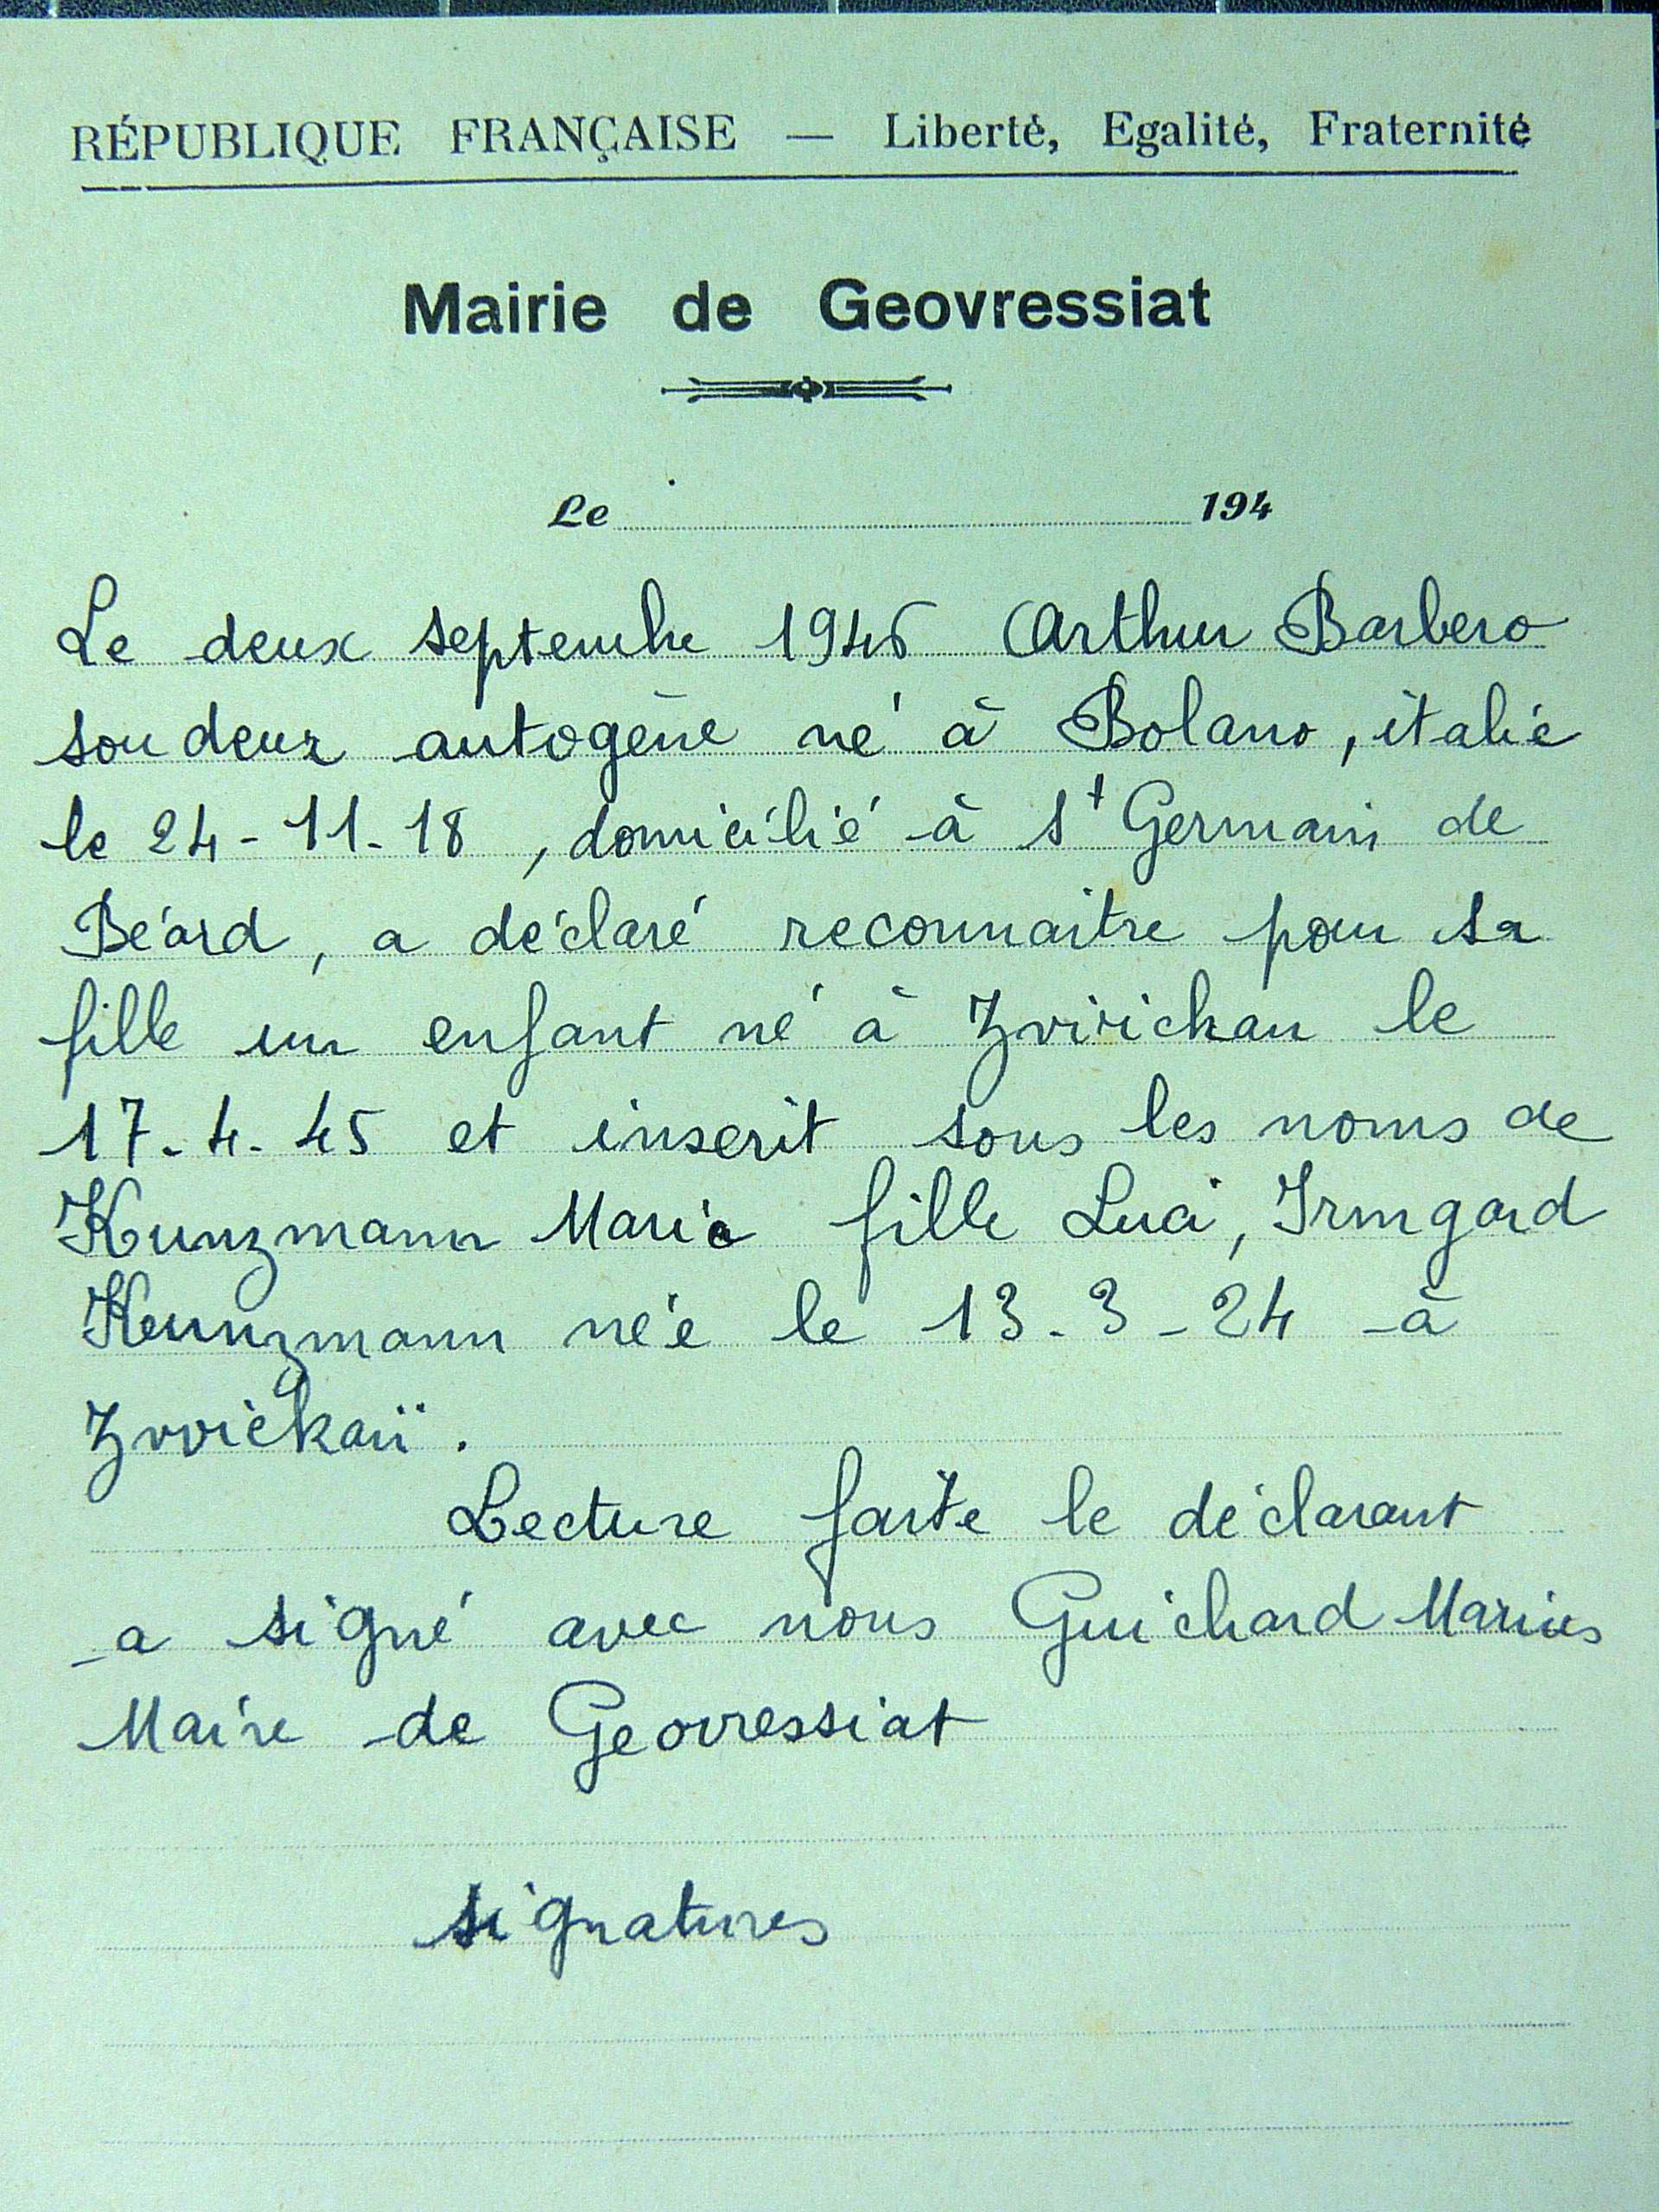 RÉPUBLIQUE FRANÇAISE — Liberté, Egalité, Fraternité
Mairie de Geovressiat
Le 194
Le deux septembre 1946 Arthur Barbero
soudeur autogène né à Bolano, italie
le 24-11-18, domicilié à St Germain de
Béard, a déclaré reconnaitre pour sa
fille un enfant né à Zwickau le
17.4.45 et inscrit sous les noms de
Kunzmann Marie fille Luci, Irmgard
Kunzmann née le 13-3-24 à
Zwickaü.
Lecture faite le déclarant
a signé avec nous Guichard Marius
Maire de Geovressiat
signatures